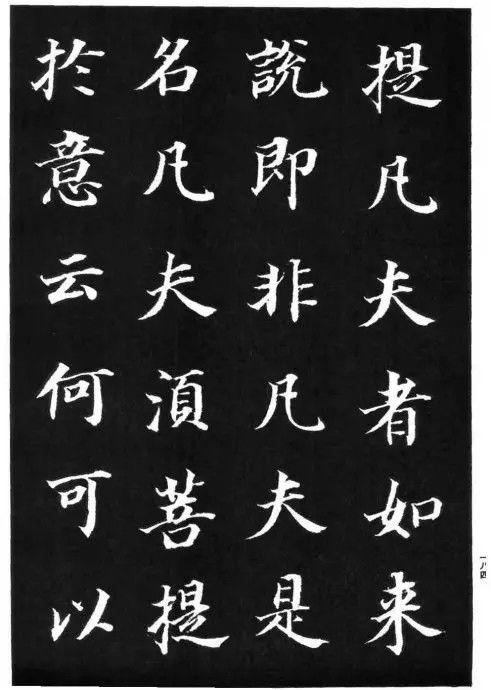 提凡夫者如来
說即非凡夫是
名凡夫湏菩提
於意云何可以
一八四